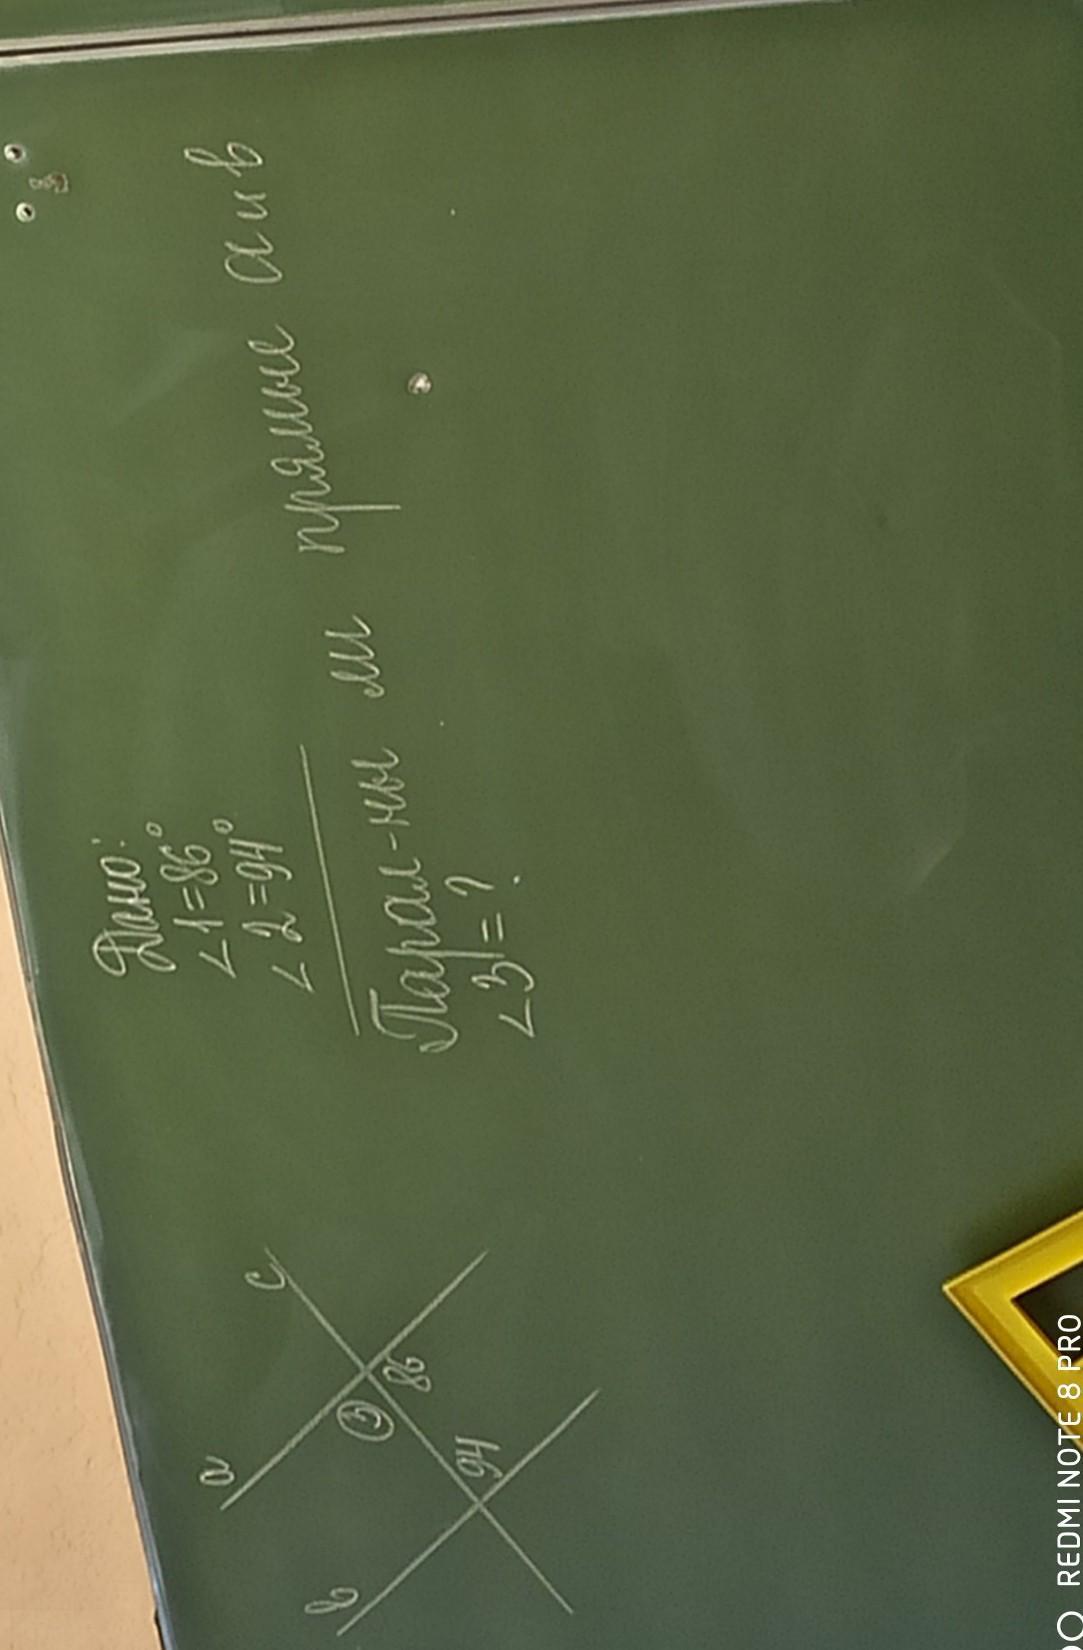 Дано:
<1=86°
<2=94°
Парал-ны ли прямые а и в
<3=?
а
с
3
86
94
в
REDMI NOTE 8 PRO